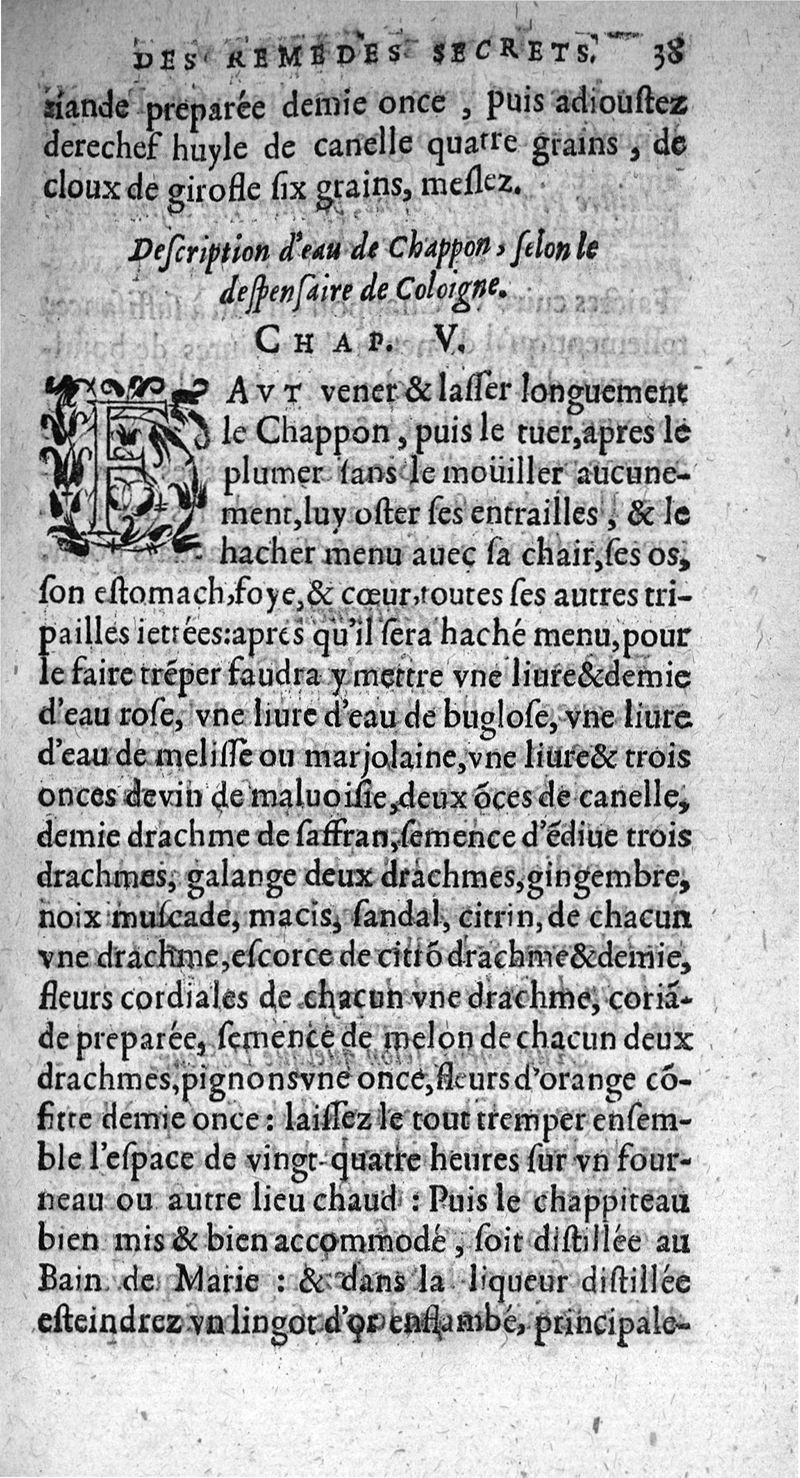 DES REMEDES SECRETS. 38
riande preparée demie once, puis adioustez
derechef huyle de canelle quatre grains, de
cloux de girofle ſix grains, meſlez.
Deſcription d'eau de Chappon, ſelon le
deſpenſaire de Coloigne.
CHAP. V.
FAVT vener & laſſer longuement
le Chappon, puis le tuer, apres le
plumer ſans le moüiller aucune-
ment, luy oſter ſes entrailles, & le
hacher menu auec ſa chair, ſes os,
ſon eſtomach, foye, & cœur, toutes ſes autres tri-
pailles iettées: apres qu'il ſera haché menu, pour
le faire trẽper faudra y mettre vne liure & demie
d'eau roſe, vne liure d'eau de bugloſe, vne liure
d'eau de meliſſe ou marjolaine, vne liure & trois
onces de vin de maluoiſie, deux õces de canelle,
demie drachme de ſaffran, ſemence d'ẽdiue trois
drachmes, galange deux drachmes, gingembre,
noix muſcade, macis, ſandal, citrin, de chacun
vne drachme, eſcorce de cittõ drachme & demie,
fleurs cordiales de chacun vne drachme, coriã-
de preparée, ſemence de melon de chacun deux
drachmes, pignons vne once, fleurs d'orange cõ-
fitte demie once: laiſſez le tout tremper enſem-
ble l'eſpace de vingt-quatre heures ſur vn four-
neau ou autre lieu chaud: Puis le chappiteau
bien mis & bien accommodé, ſoit diſtillée au
Bain de Marie: & dans la liqueur diſtillée
eſteindrez vn lingot d'or enflambé, principale-